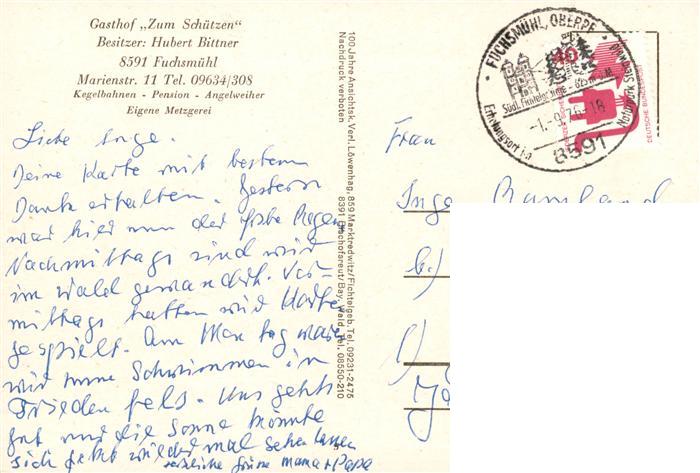 Gasthof „Zum Schützen"
Besitzer: Hubert Bittner
8591 Fuchsmühl
Marienstr. 11 Tel. 09634/308
Kegelbahnen - Pension - Angelweiher
Eigene Metzgerei
Liebe Inge.
Deine Karte mit bestem
Dank erhalten. Gestern
war hier nun der Regen
Nachmittags sind wir
im Wald gewandert. Vor-
mittags hatten wir Karten
gespielt. Am Montag waren
wir zum Schwimmen in
Friedenfels. Uns gehts
gut und die Sonne könnte
sich jetzt wieder mal sehen lassen
herzliche Grüße Mama + Papa
100 Jahre Ansichtsk. Verl. Löwenhag, 859 Marktredwitz/Fichtelgeb. Tel. 09231-2475
Nachdruck verboten 8391 Bischofsreut/Bay. Wald, Tel. 08550-210
FUCHSMÜHL, OBERPF.
Südl. Fichtelgebirge - 625 m ü.M.
-1.-9.76-18
Erholungsort im Naturpark Steinwald
8591
40
DEUTSCHE BUNDESPOST
Frau
Inge
b.)